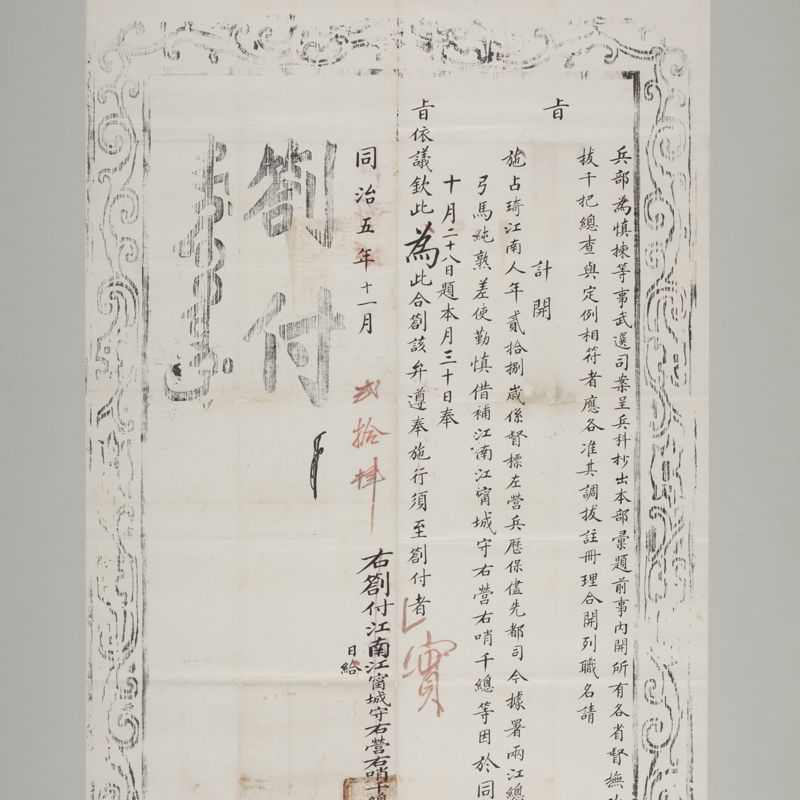 兵部為慎揀等事武選司案呈兵科抄出本部彙題前事內開所有各省督撫
拔千把總查與定例相符者應各准其調拔註冊理合開列職名請
旨
計開
施占琦江南人年貳拾捌歲係督標左營兵歷保儘先都司今據署兩江總
弓馬純熟差使勤慎借補江南江甯城守右營右哨千總等因於同
十月二十八日題本月三十日奉
旨依議欽此為此合劄該弁遵奉施行須至劄付者
實
同治五年十一月貳拾肆
日給
右劄付江南江甯城守右營右哨千總
劄付